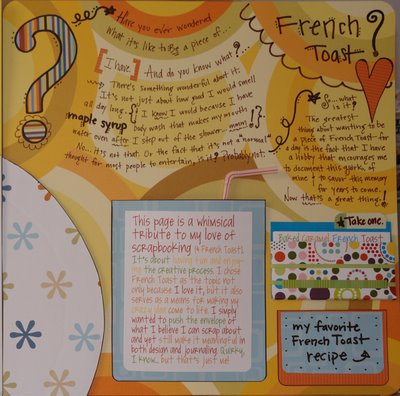 Have you ever wondered
what it's like to be a piece of...
French
Toast?
[I have.] And do you know what?...
There's something wonderful about it.
It's not just about how good I would smell
all day long. {I know I would because I have
maple syrup body wash that makes my mouth
water even after I step out of the shower...mmmm!}
No...it's not that. Or the fact that it's not a "normal"
thought for most people to entertain, is it? Probably not.
So... what
is it?
The greatest
thing about wanting to be
a piece of French Toast for
a day is the fact that I have
a hobby that encourages me
to document this quirk of
mine & to savor this memory
for years to come.
Now that's a great thing!
This page is a whimsical
tribute to my love of
scrapbooking (& French Toast).
It's about having fun and enjoy-
ing the creative process. I chose
French Toast as the topic not
only because I love it, but it also
serves as a means for making my
crazy idea come to life. I simply
wanted to push the envelope of
what I believe I can scrap about
and yet still make it meaningful in
both design and journaling. Quirky,
I know... but that's just me!
Take one.
Baked Caramel French Toast
my favorite
French Toast
recipe